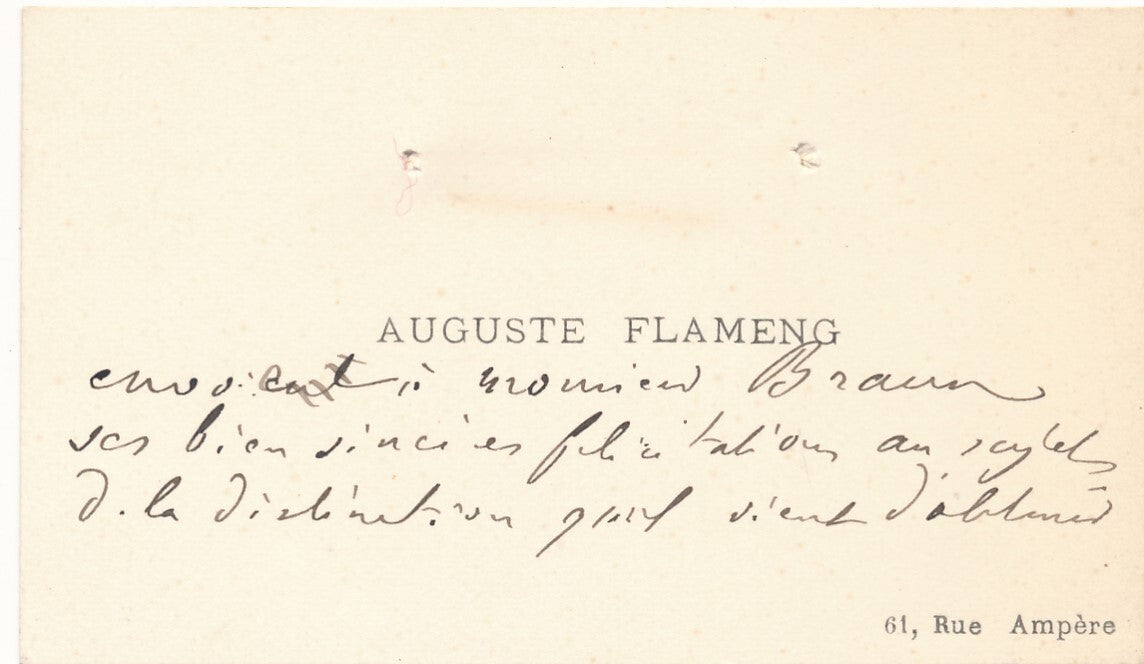 AUGUSTE FLAMENG
envoient à monsieur Braun
ses bien sincères félicitations au sujet
de la distinction qu'il vient d'obtenir
61, Rue Ampère